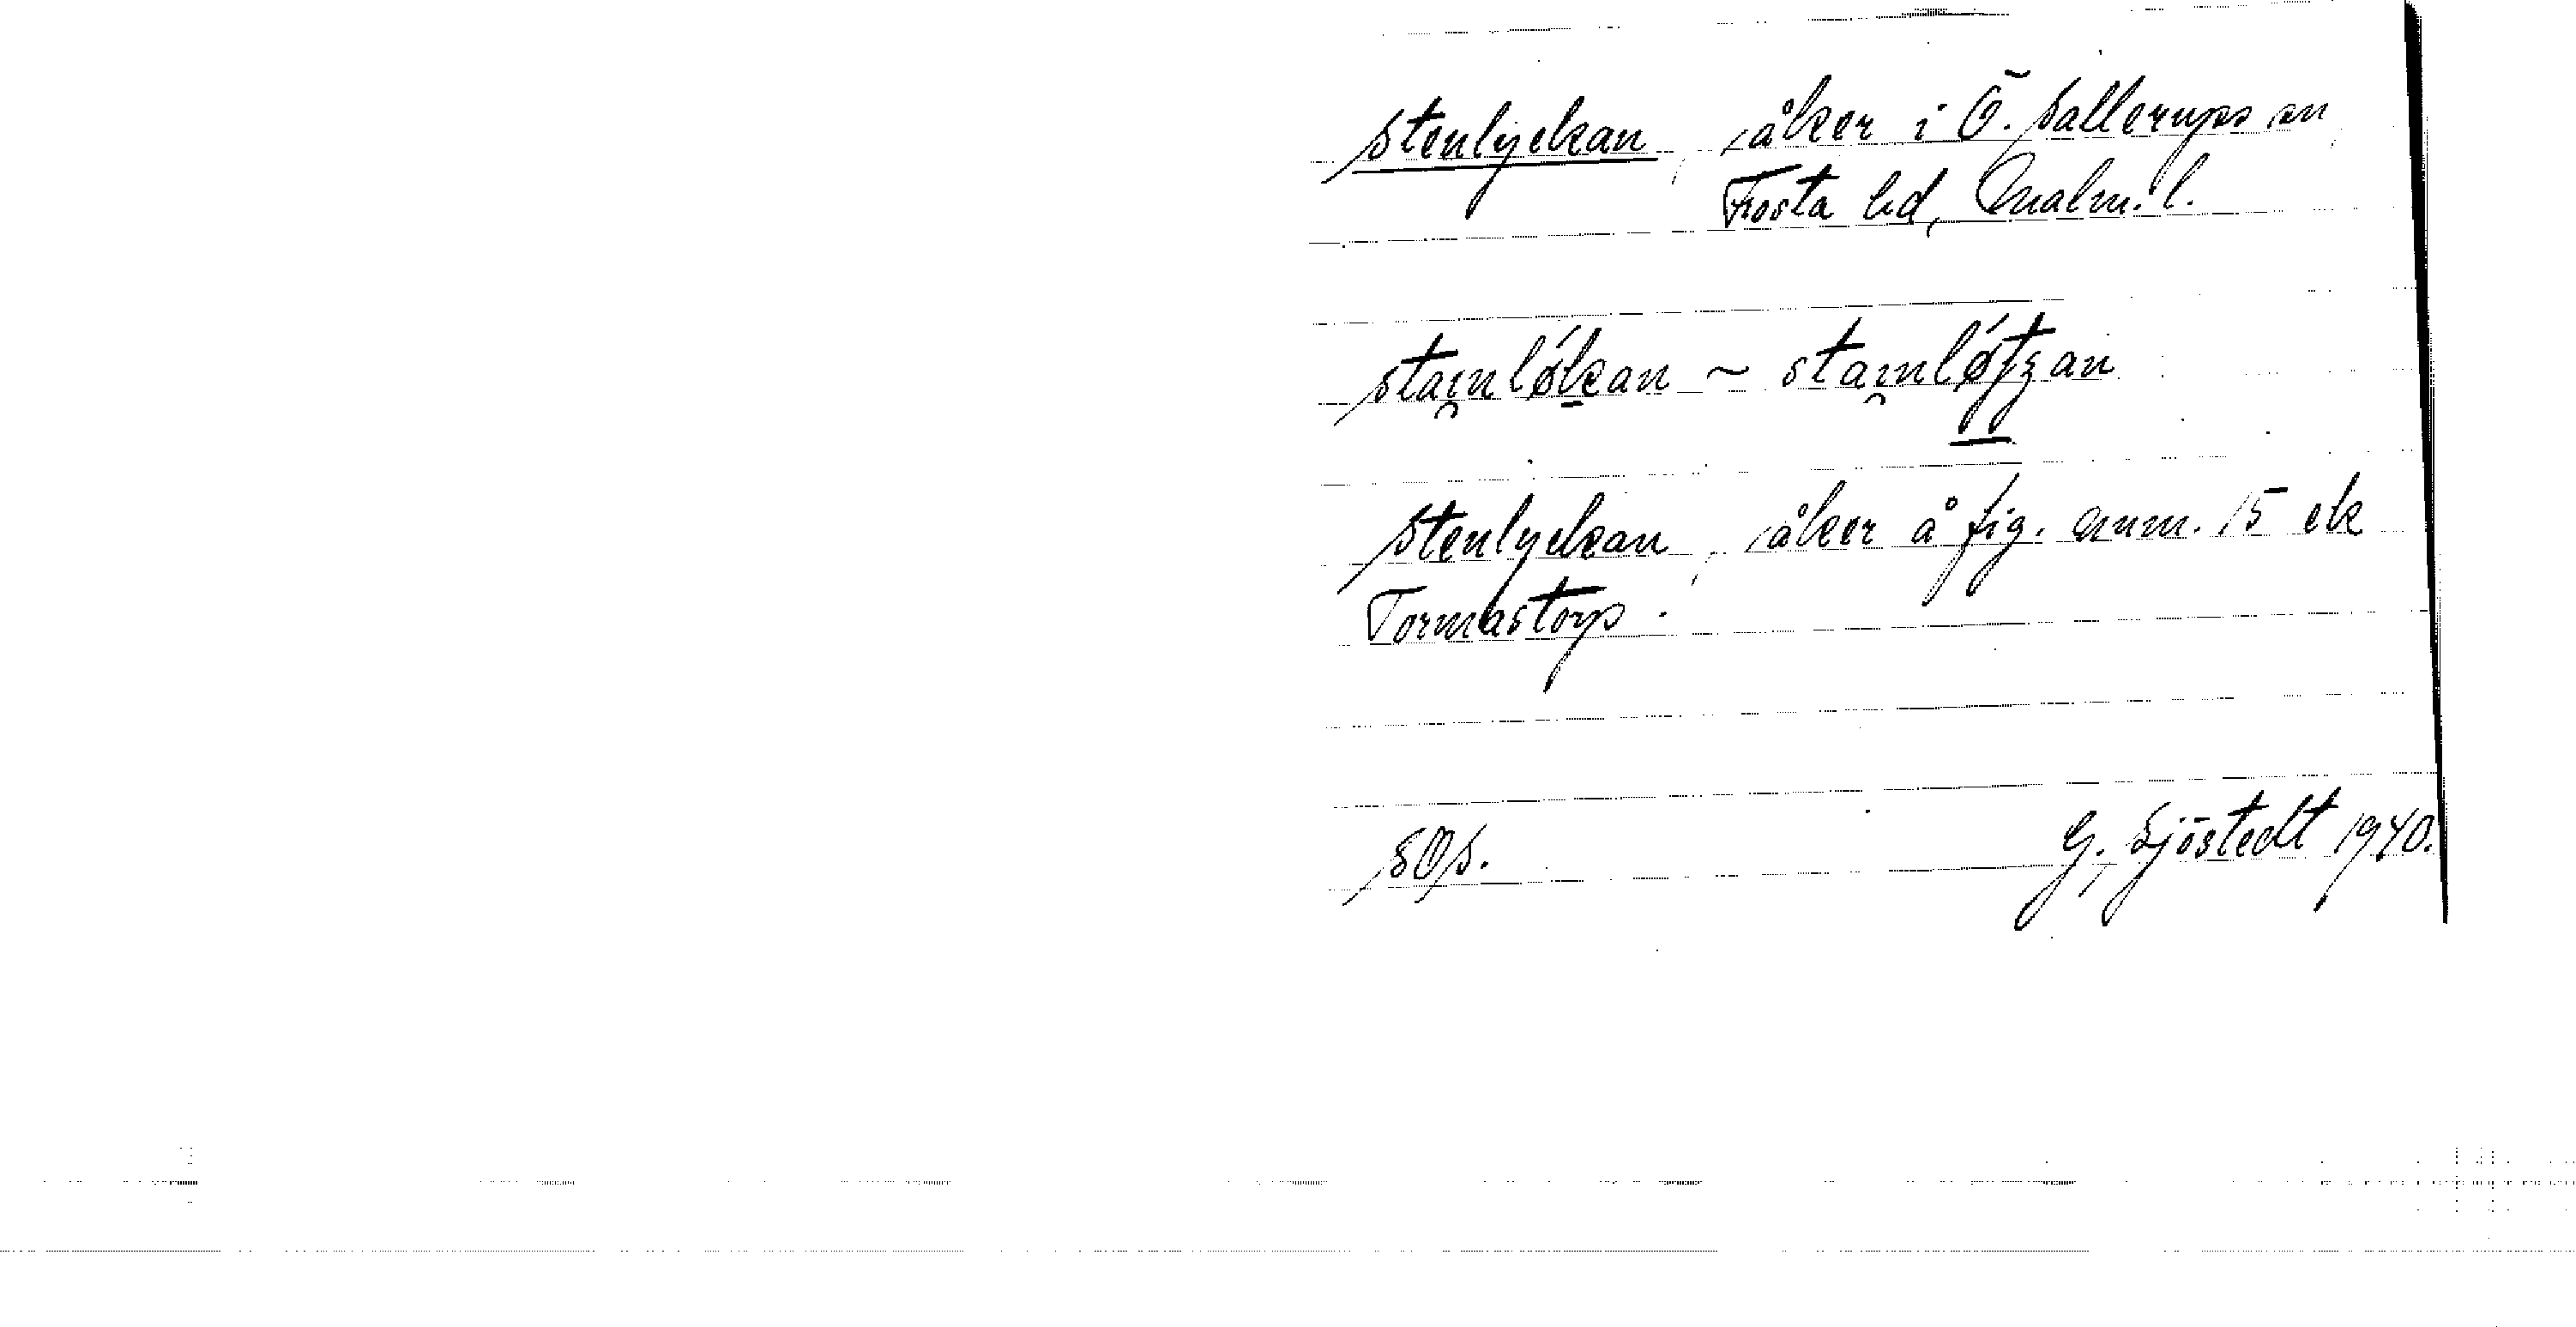 Stenlyckan, åker i Ö. Sallerups sn,
Frosta hd, Malm. l.
stai̯nlǿkan ~ stai̯nlǿtʒan
Stenlyckan, åker å fig. num. 15 ek
Tormastorp.
SOS. G. Sjöstedt 1940.